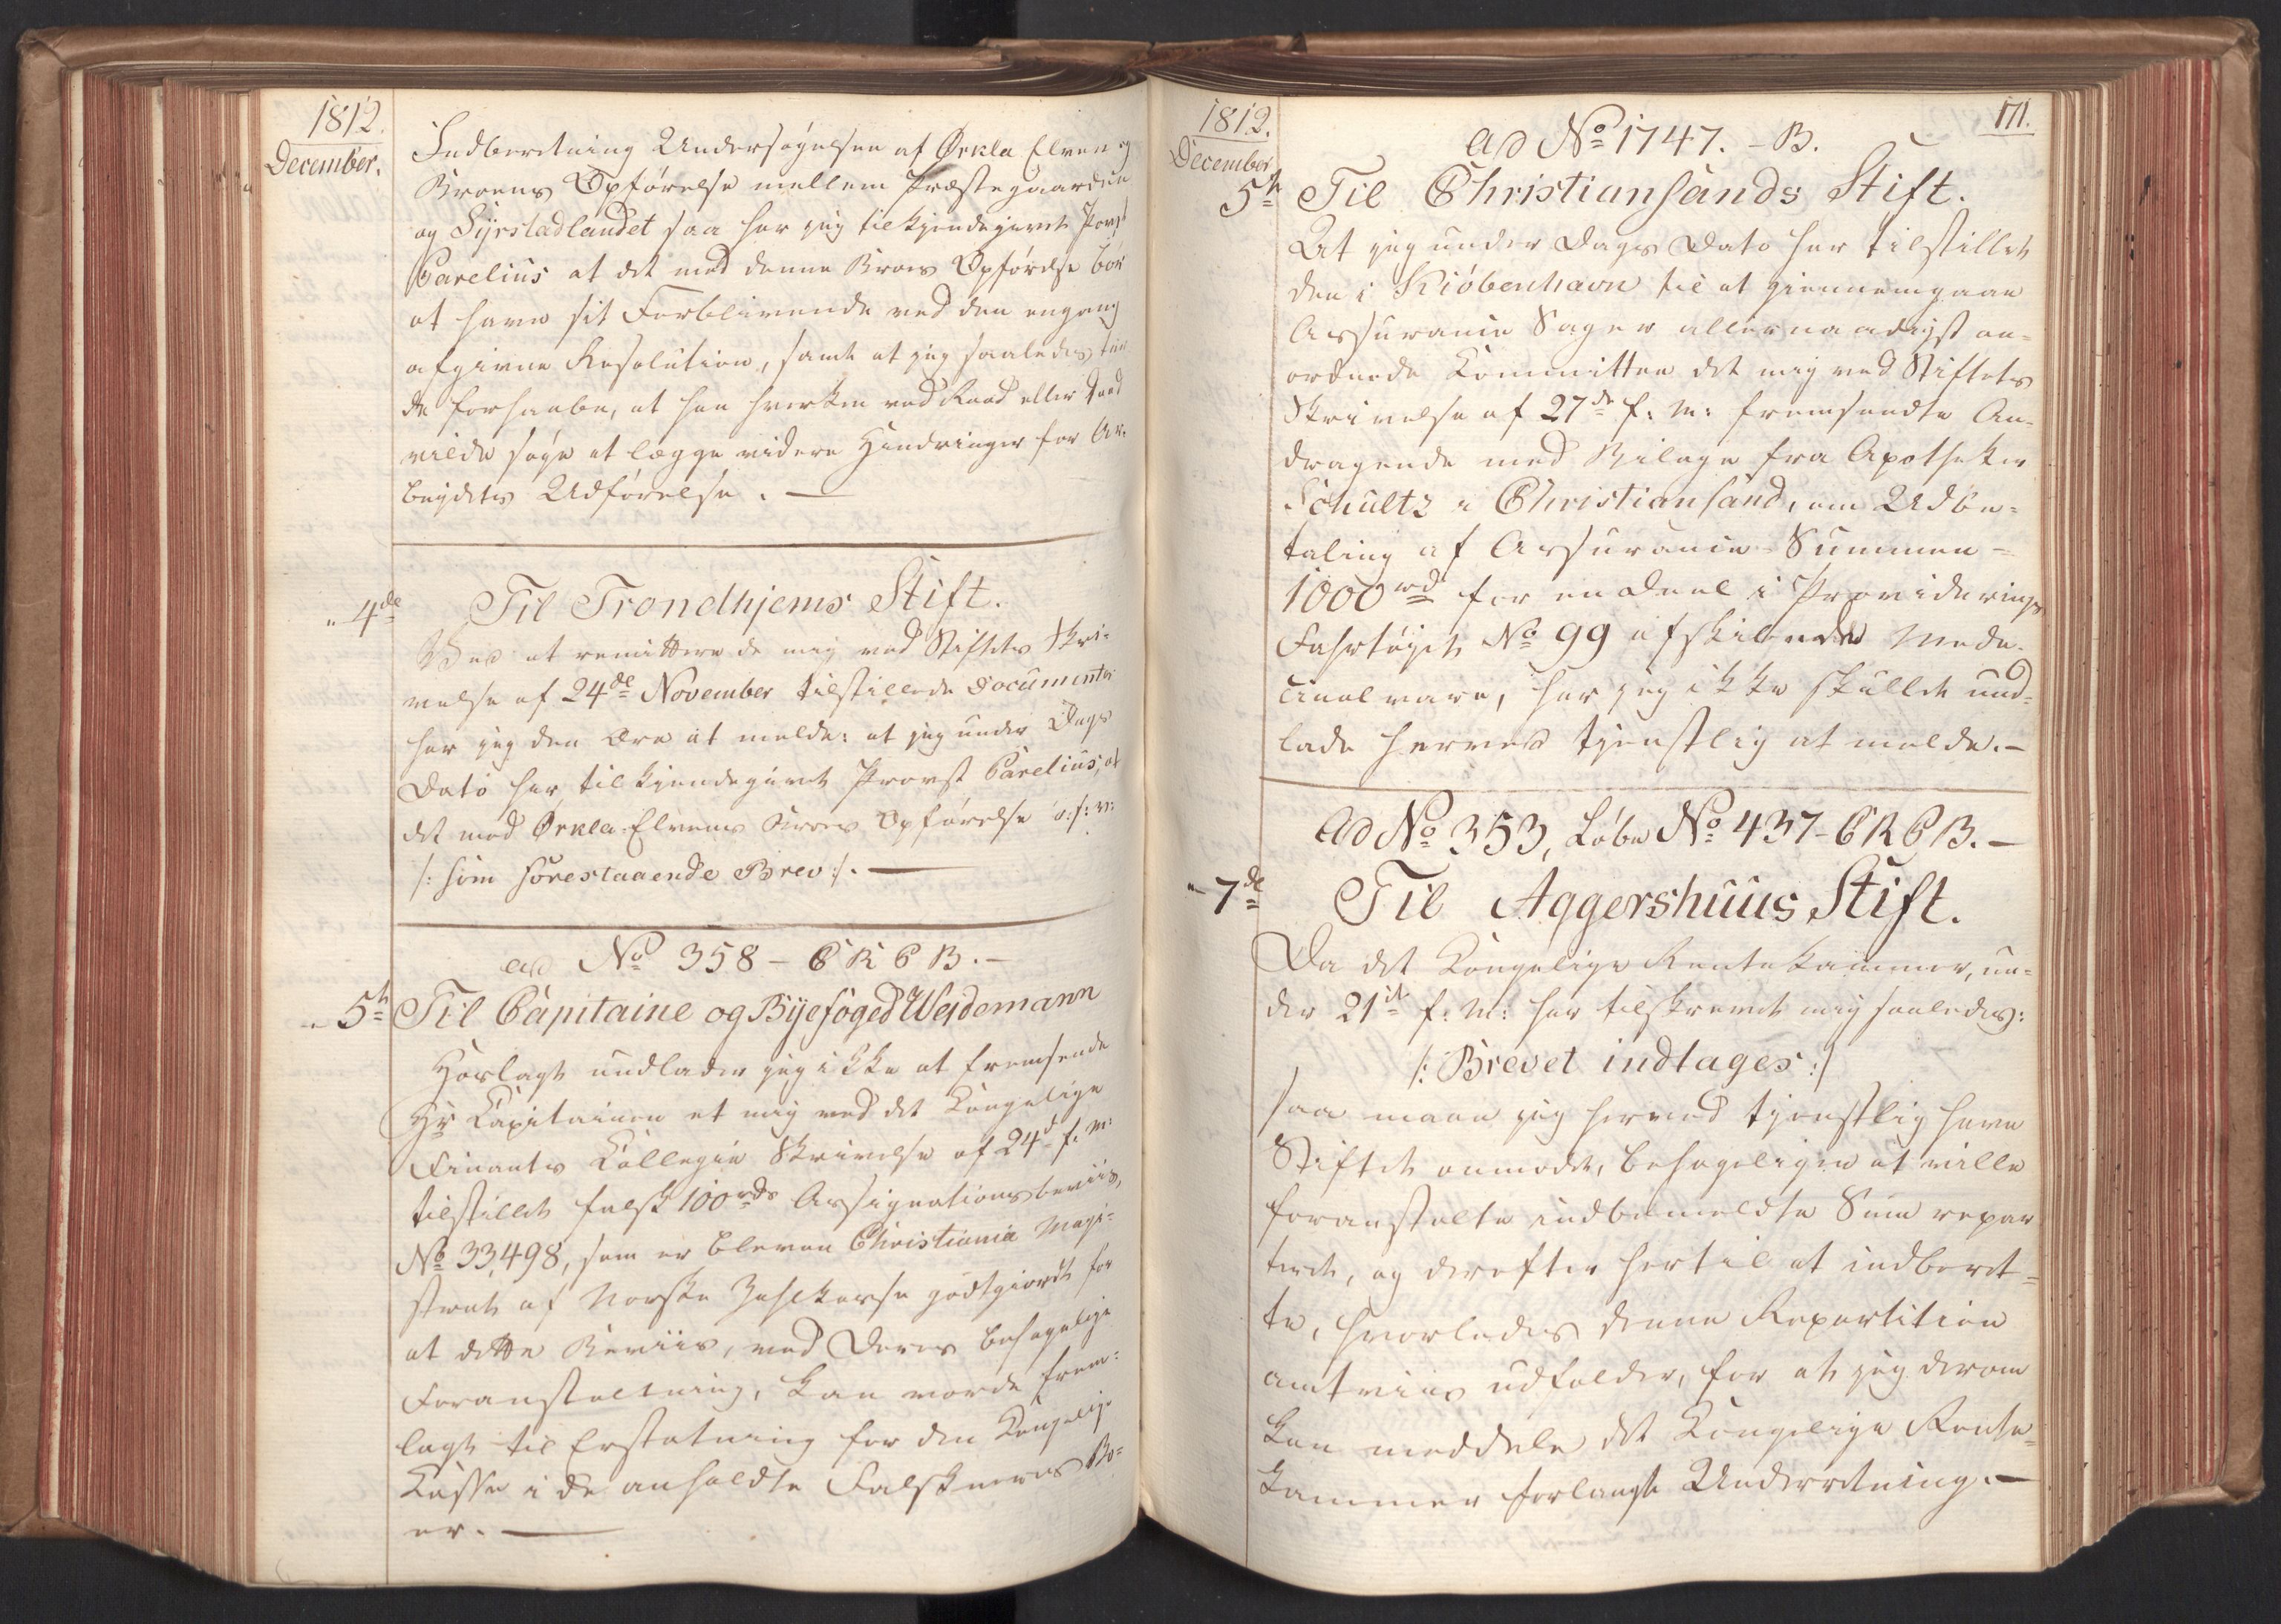 1812.
December.
Indberetning Undersøgelsen af Ørkla Elven og
Broens Opførelse mellem Præstegaarden
og Syrstadlandet saa har jeg tilkjendegivet Provst
Parelius at det med denne Broes Opførelse bør
at have sit Forblivende ved den engang
afgivne Resolution, samt at jeg saaledes turde
forhaabe, at han hverken ved Raad eller Daad
vilde søge at lægge videre Hindringer for Ar-
beydets Udførelse. —
" 4de
Til Trondhjems Stift.
Ved at remittere de mig ved Stiftets Skri-
velse af 24de November tilstillede Documenter
har jeg den Ære at melde: at jeg under Dags
Dato har tilkjendegivet Provst Parelius, at
det med Ørkla-Elvens Broes Opførelse o: s: v:
/: som forestaaende Brev :/. —
ad No 358 - C R C B. -
" 5te
Til Capitaine og Byefoged Weidemann
Hoslagt undlader jeg ikke at fremsende
Hr Capitainen et mig ved det Kongelige
Finants Collegie Skrivelse af 24d f. M:
tilstillet falsk 100rds Assignationsbeviis,
No 33,498, som er bleven Christiania Magi-
strat af Norske Zahlkasse godtgiordt for
at dette Beviis, ved Deres behagelige
Foranstaltning, kan vorde frem-
lagt til Erstatning for den Kongelige
Kasse i de anholdte Falskneres Bo-
er. —
1812.
December
171.
ad No 1747. - B.
5te
Til Christiansands Stift.
At jeg under Dags Dato har tilstillet
den i Kiøbenhavn til at giennemgaae
Assurance Sager allernaadigst an-
ordnede Committee det mig ved Stiftets
Skrivelse af 27de f: M: fremsendte An-
dragende med Bilage fra Apotheker
Schultz i Christiansand, om Udbe-
taling af Assurance-Summen -
1000 rd for en Deel i Providerings
Fahrtøyet No 99 afskibede Medi-
cinalvare, har jeg ikke skullet und-
lade herved tjenstlig at melde. -
Ad No 353, Løbe No 437 - C R C B. -
" 7de
Til Aggershuus Stift.
Da det Kongelige Rentekammer, un-
der 21de f: M: har tilskrevet mig saaledes:
/: Brevet indtages :/
saa maae jeg herved tjenstlig have
Stiftet anmodet, behageligen at ville
foranstalte indbemeldte Sum repar-
teret, og derefter hertil at indberet-
te, hvorledes denne Repartition
amtviis udfalder, for at jeg derom
kan meddele det Kongelige Rente-
kammer forlangte Underretning. —